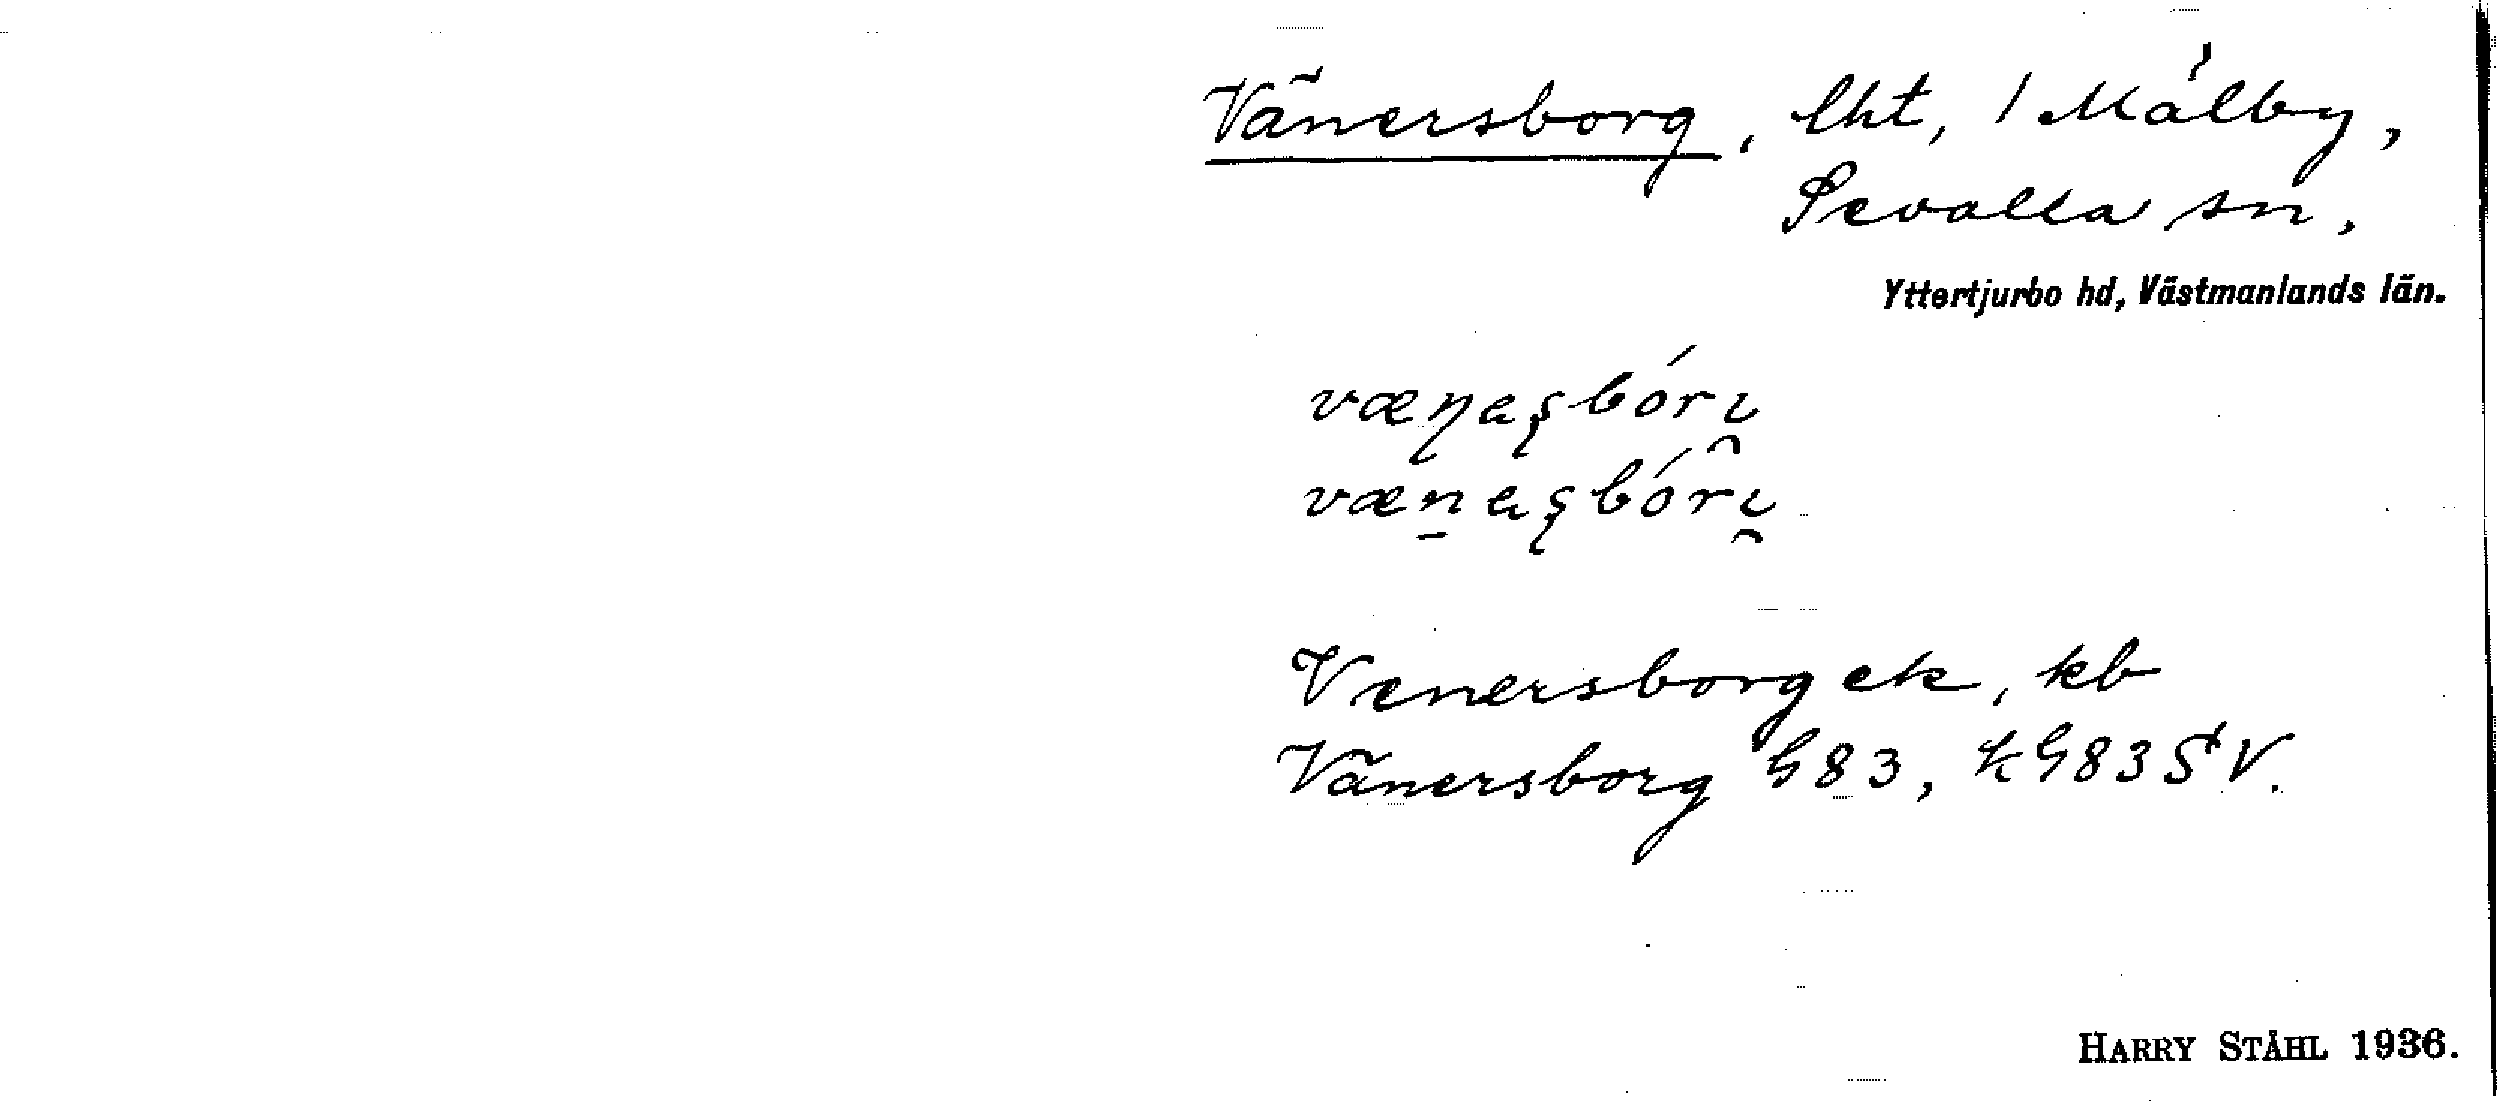 Vänersborg, lht, / Målby,
Sevalla sn,
Yttertjurbo hd, Västmanlands län.
Venersborg ek, kb
Vänersborg G83, kG83SV.
HARRY STÅHL 1936.